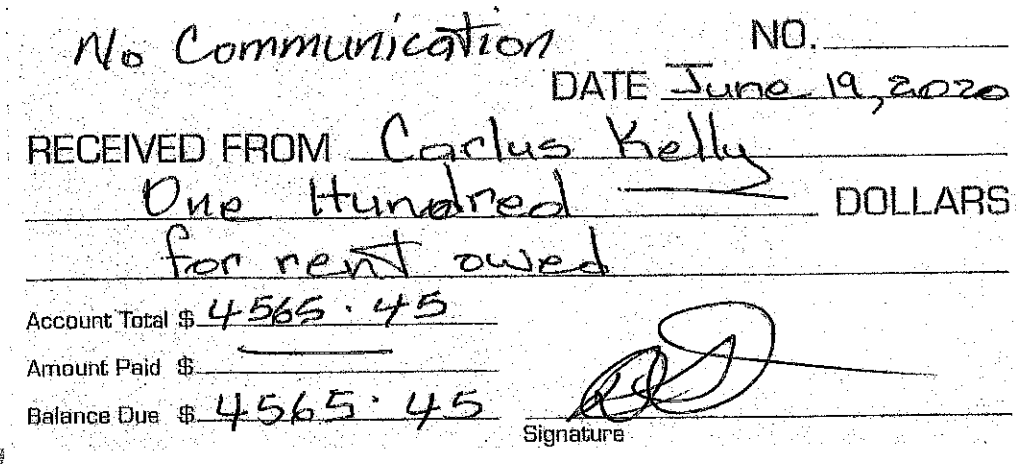 No Communication
NO.
DATE June 19, 2020
RECEIVED FROM Carlus Kelly
One Hundred DOLLARS
for rent owed
Account Total $ 4565.45
Amount Paid $
Balance Due $ 4565.45
Signature